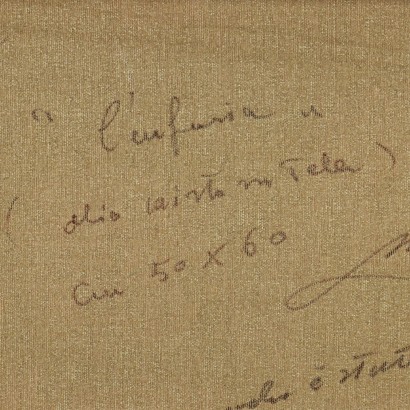 " l'enfasia "
( olio misto su Tela )
cm 50 x 60
è stat